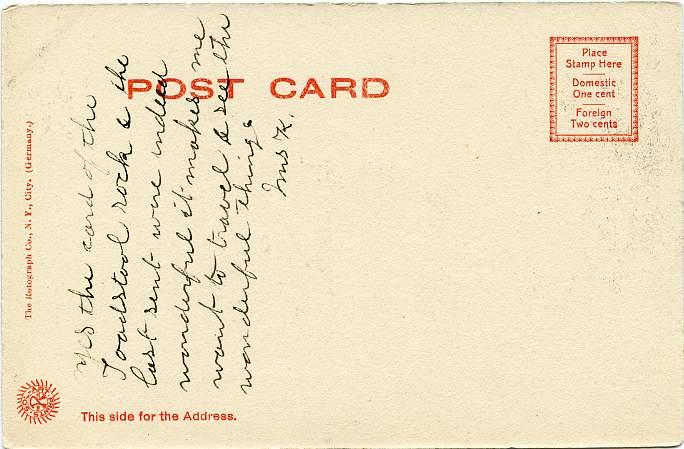 POST CARD
Place
Stamp Here
Domestic
One cent
Foreign
Two cents
yes the card of the
Toadstool rock & the
last sent were indeed
wonderful it makes me
want to travel & see the
wonderful things.
Mrs K.
The Rotograph Co., N. Y., City. (Germany.)
This side for the Address.